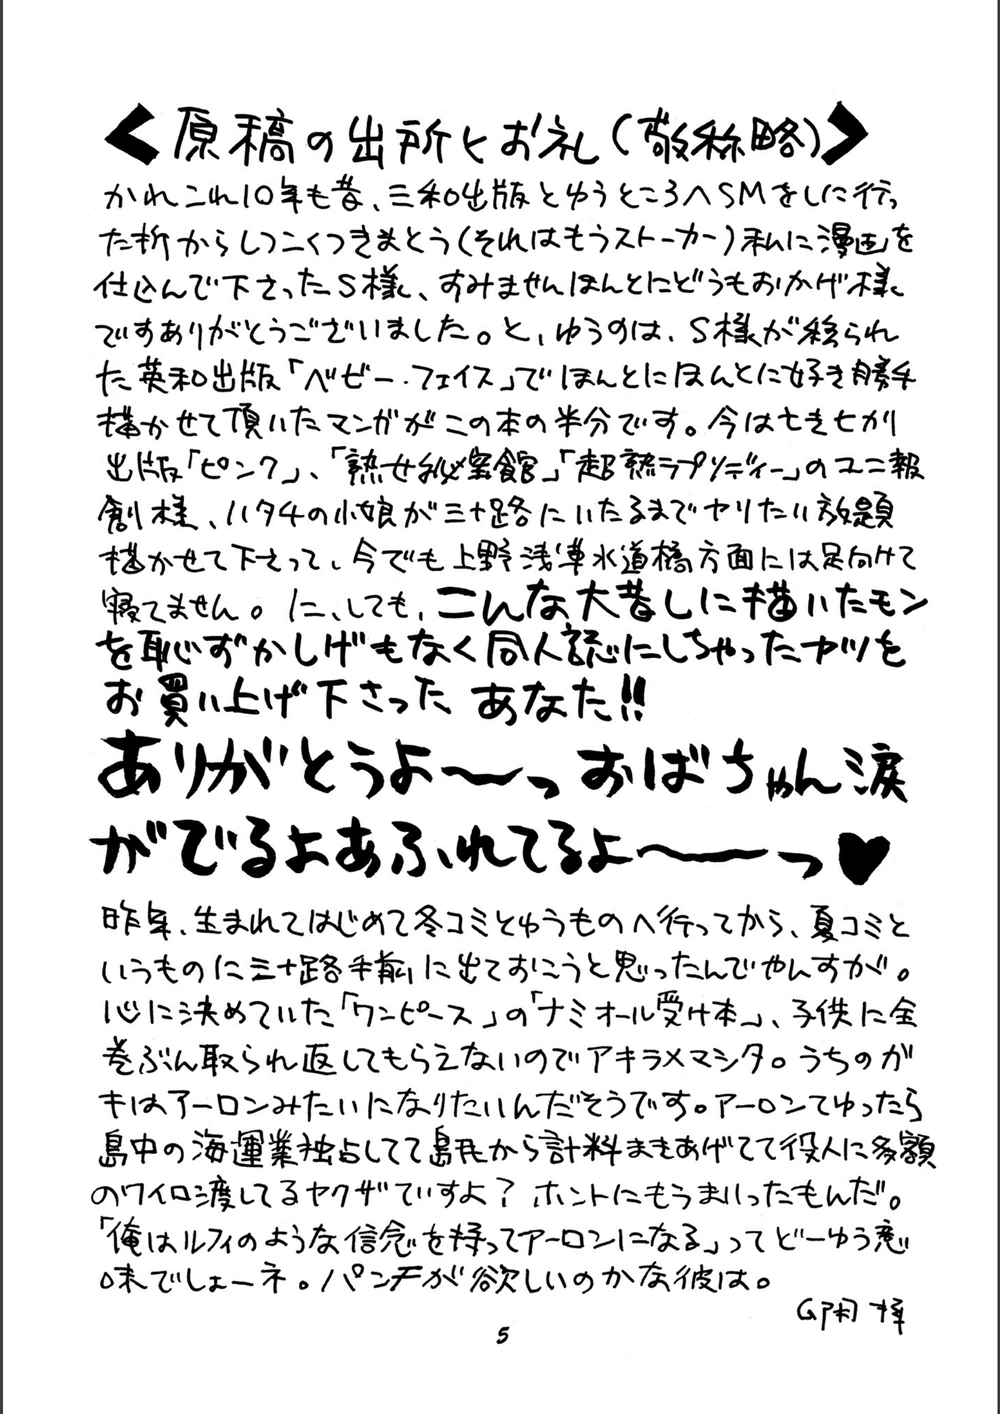 <原稿の出所とお礼(敬称略)>
かれこれ10年も昔、三和出版とゆうところへSMをしに行っ
た折からしつこくつきまとう(それはもうストーカー)私に漫画を
仕込んで下さったS様、すみませんほんとにどうもおかげ様
ですありがとうございました。と、ゆうのは、S様が移られ
た英和出版「ベビー・フェイス」でほんとにほんとに好き勝手
描かせて頂いたマンガがこの本の半分です。今は
出版「ピンク」、「熟女秘蜜館」「超熟ラプソディー」のユニ報
創様、ハタチの小娘が三十路にいたるまでヤリたい放題
描かせて下さって、今でも上野浅草水道橋方面には足向けて
寝てません。に、しても、こんな大昔しに描いたモン
を恥ずかしげもなく同人誌にしちゃったヤツを
お買い上げ下さった あなた!!
ありがとうよ〜っおばちゃん涙
がでるよあふれてるよ〜っ♥
昨年、生まれてはじめて冬コミとゆうものへ行ってから、夏コミと
いうものに三十路手前に出ておこうと思ったんでやんすが。
心に決めていた「ワンピース」の「ナミオール受け本」、子供に全
巻ぶん取られ返してもらえないのでアキラメマシタ。うちのガ
キはアーロンみたいになりたいんだそうです。アーロンてゆったら
島中の海運業独占してて島民から計料まきあげてて役人に多額
のワイロ渡してるヤクザですよ?ホントにもうまいったもんだ。
「俺はルフィのような信念を持ってアーロンになる」ってどーゆう意
味でしょーネ。パンチが欲しいのかな彼は。
5